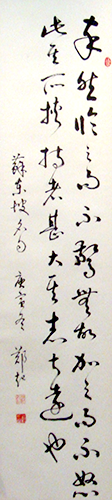 卒然臨之而不驚無故加之而不怒
此其所挾持者甚大其志甚遠也
蘇東坡名句 庚寅冬 鄭